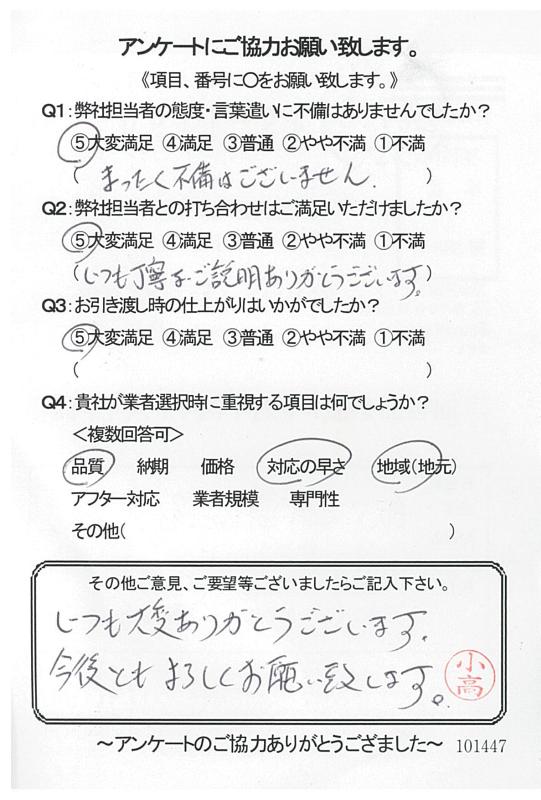 アンケートにご協力お願い致します。
《項目、番号に〇をお願い致します。》
Q1：弊社担当者の態度・言葉遣いに不備はありませんでしたか？
⑤大変満足 ④満足 ③普通 ②やや不満 ①不満
( まったく不備はございません. )
Q2：弊社担当者との打ち合わせはご満足いただけましたか？
⑤大変満足 ④満足 ③普通 ②やや不満 ①不満
(いつも丁寧なご説明ありがとうございます。)
Q3：お引き渡し時の仕上がりはいかがでしたか？
⑤大変満足 ④満足 ③普通 ②やや不満 ①不満
( )
Q4：貴社が業者選択時に重視する項目は何でしょうか？
＜複数回答可＞
品質 納期 価格 対応の早さ 地域(地元)
アフター対応 業者規模 専門性
その他( )
その他ご意見、ご要望等ございましたらご記入下さい。
いつも大変ありがとうございます。
今後ともよろしくお願い致します。
小高
～アンケートのご協力ありがとうござました～ 101447